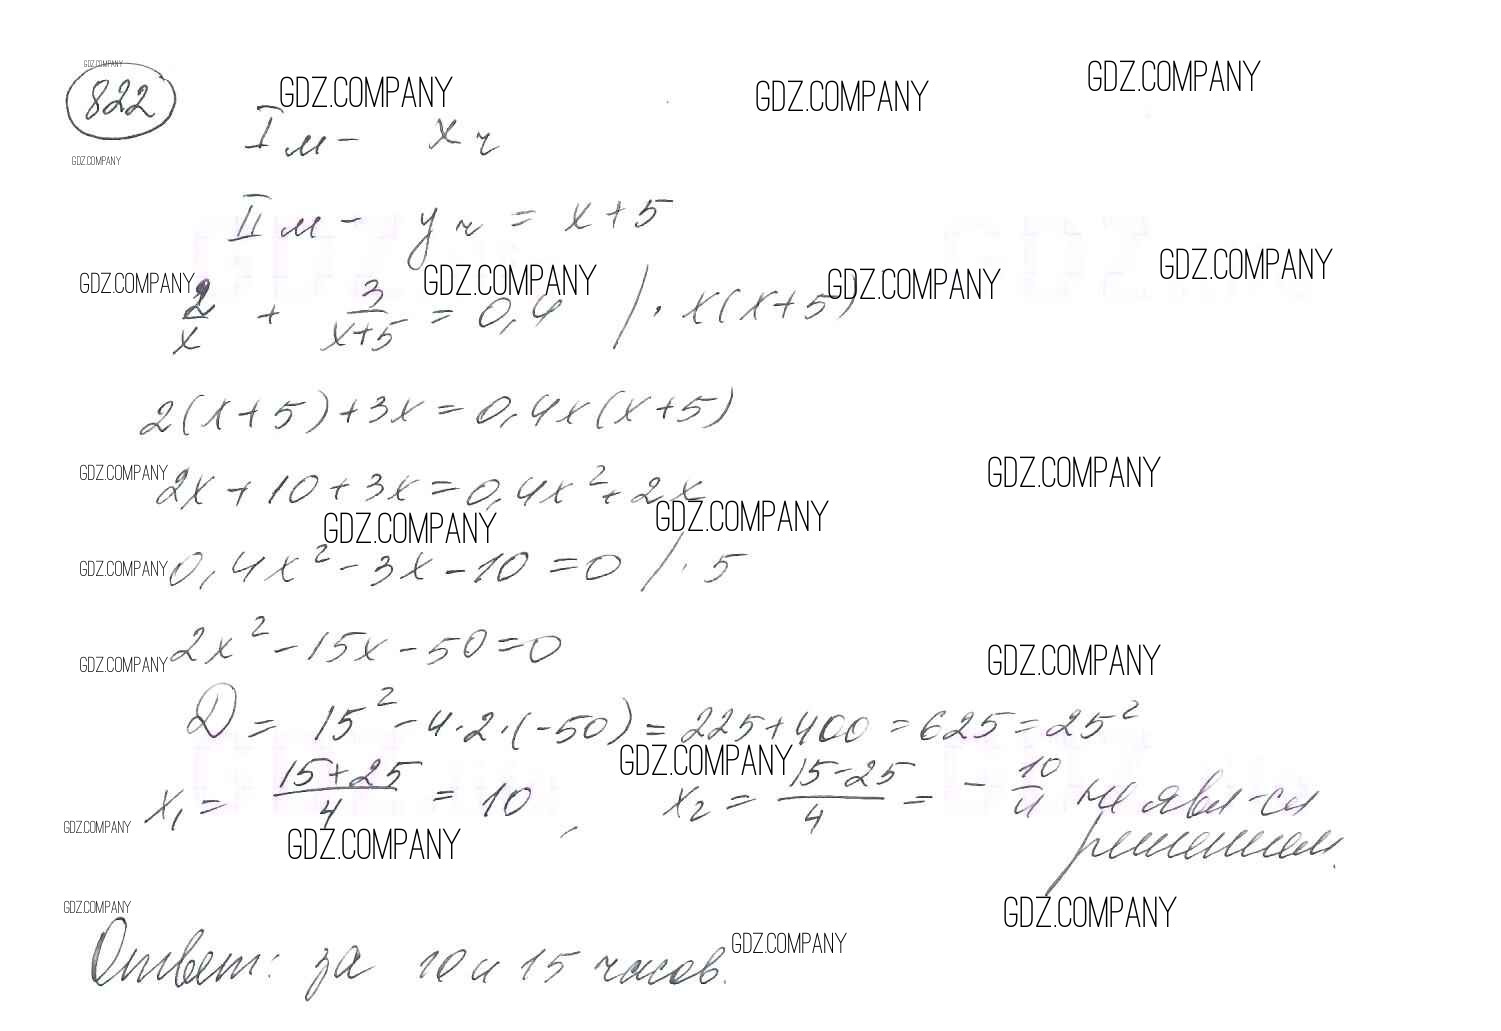 GDZ.COMPANY
822
GDZ.COMPANY
GDZ.COMPANY
GDZ.COMPANY
I м - x ч
GDZ.COMPANY
II м - y ч = x+5
GDZ.COMPANY
GDZ.COMPANY
GDZ.COMPANY
GDZ.COMPANY
2/x + 3/(x+5) = 0,4 / · x(x+5)
2(x+5)+3x=0,4x(x+5)
GDZ.COMPANY
GDZ.COMPANY
2x+10+3x=0,4x²+2x
GDZ.COMPANY
GDZ.COMPANY
GDZ.COMPANY
0,4x²-3x-10=0 / · 5
2x²-15x-50=0
GDZ.COMPANY
GDZ.COMPANY
D = 15²-4·2·(-50)=225+400=625=25²
GDZ.COMPANY
x₁ = (15+25)/4 = 10, x₂ = (15-25)/4 = - 10/4 не явл-ся
решением.
GDZ.COMPANY
GDZ.COMPANY
GDZ.COMPANY
GDZ.COMPANY
GDZ.COMPANY
Ответ: за 10 и 15 часов.